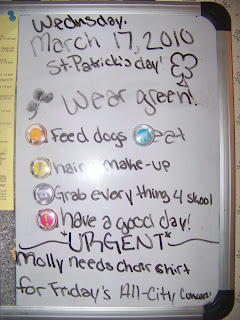 Wednsday,
March 17, 2010
St. Patrick's day!
Wear green!
Feed dogs eat
hair make-up
Grab every thing 4 skool
have a good day!
*URGENT*
Molly needs choir shirt
for Friday's All-City Concert!